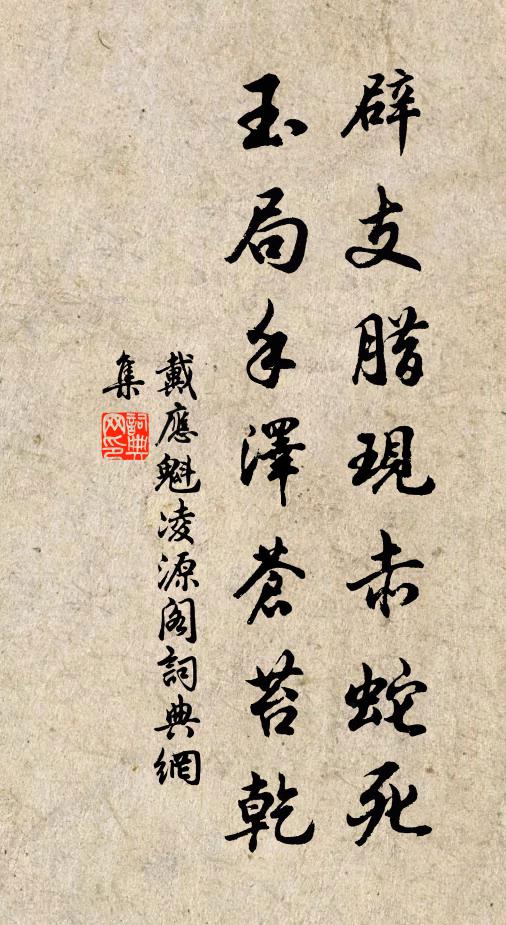 辟支腊現赤蛇死
玉局手澤蒼苔乾
戴應魁凌源閣詞典網
集
詞典
网印